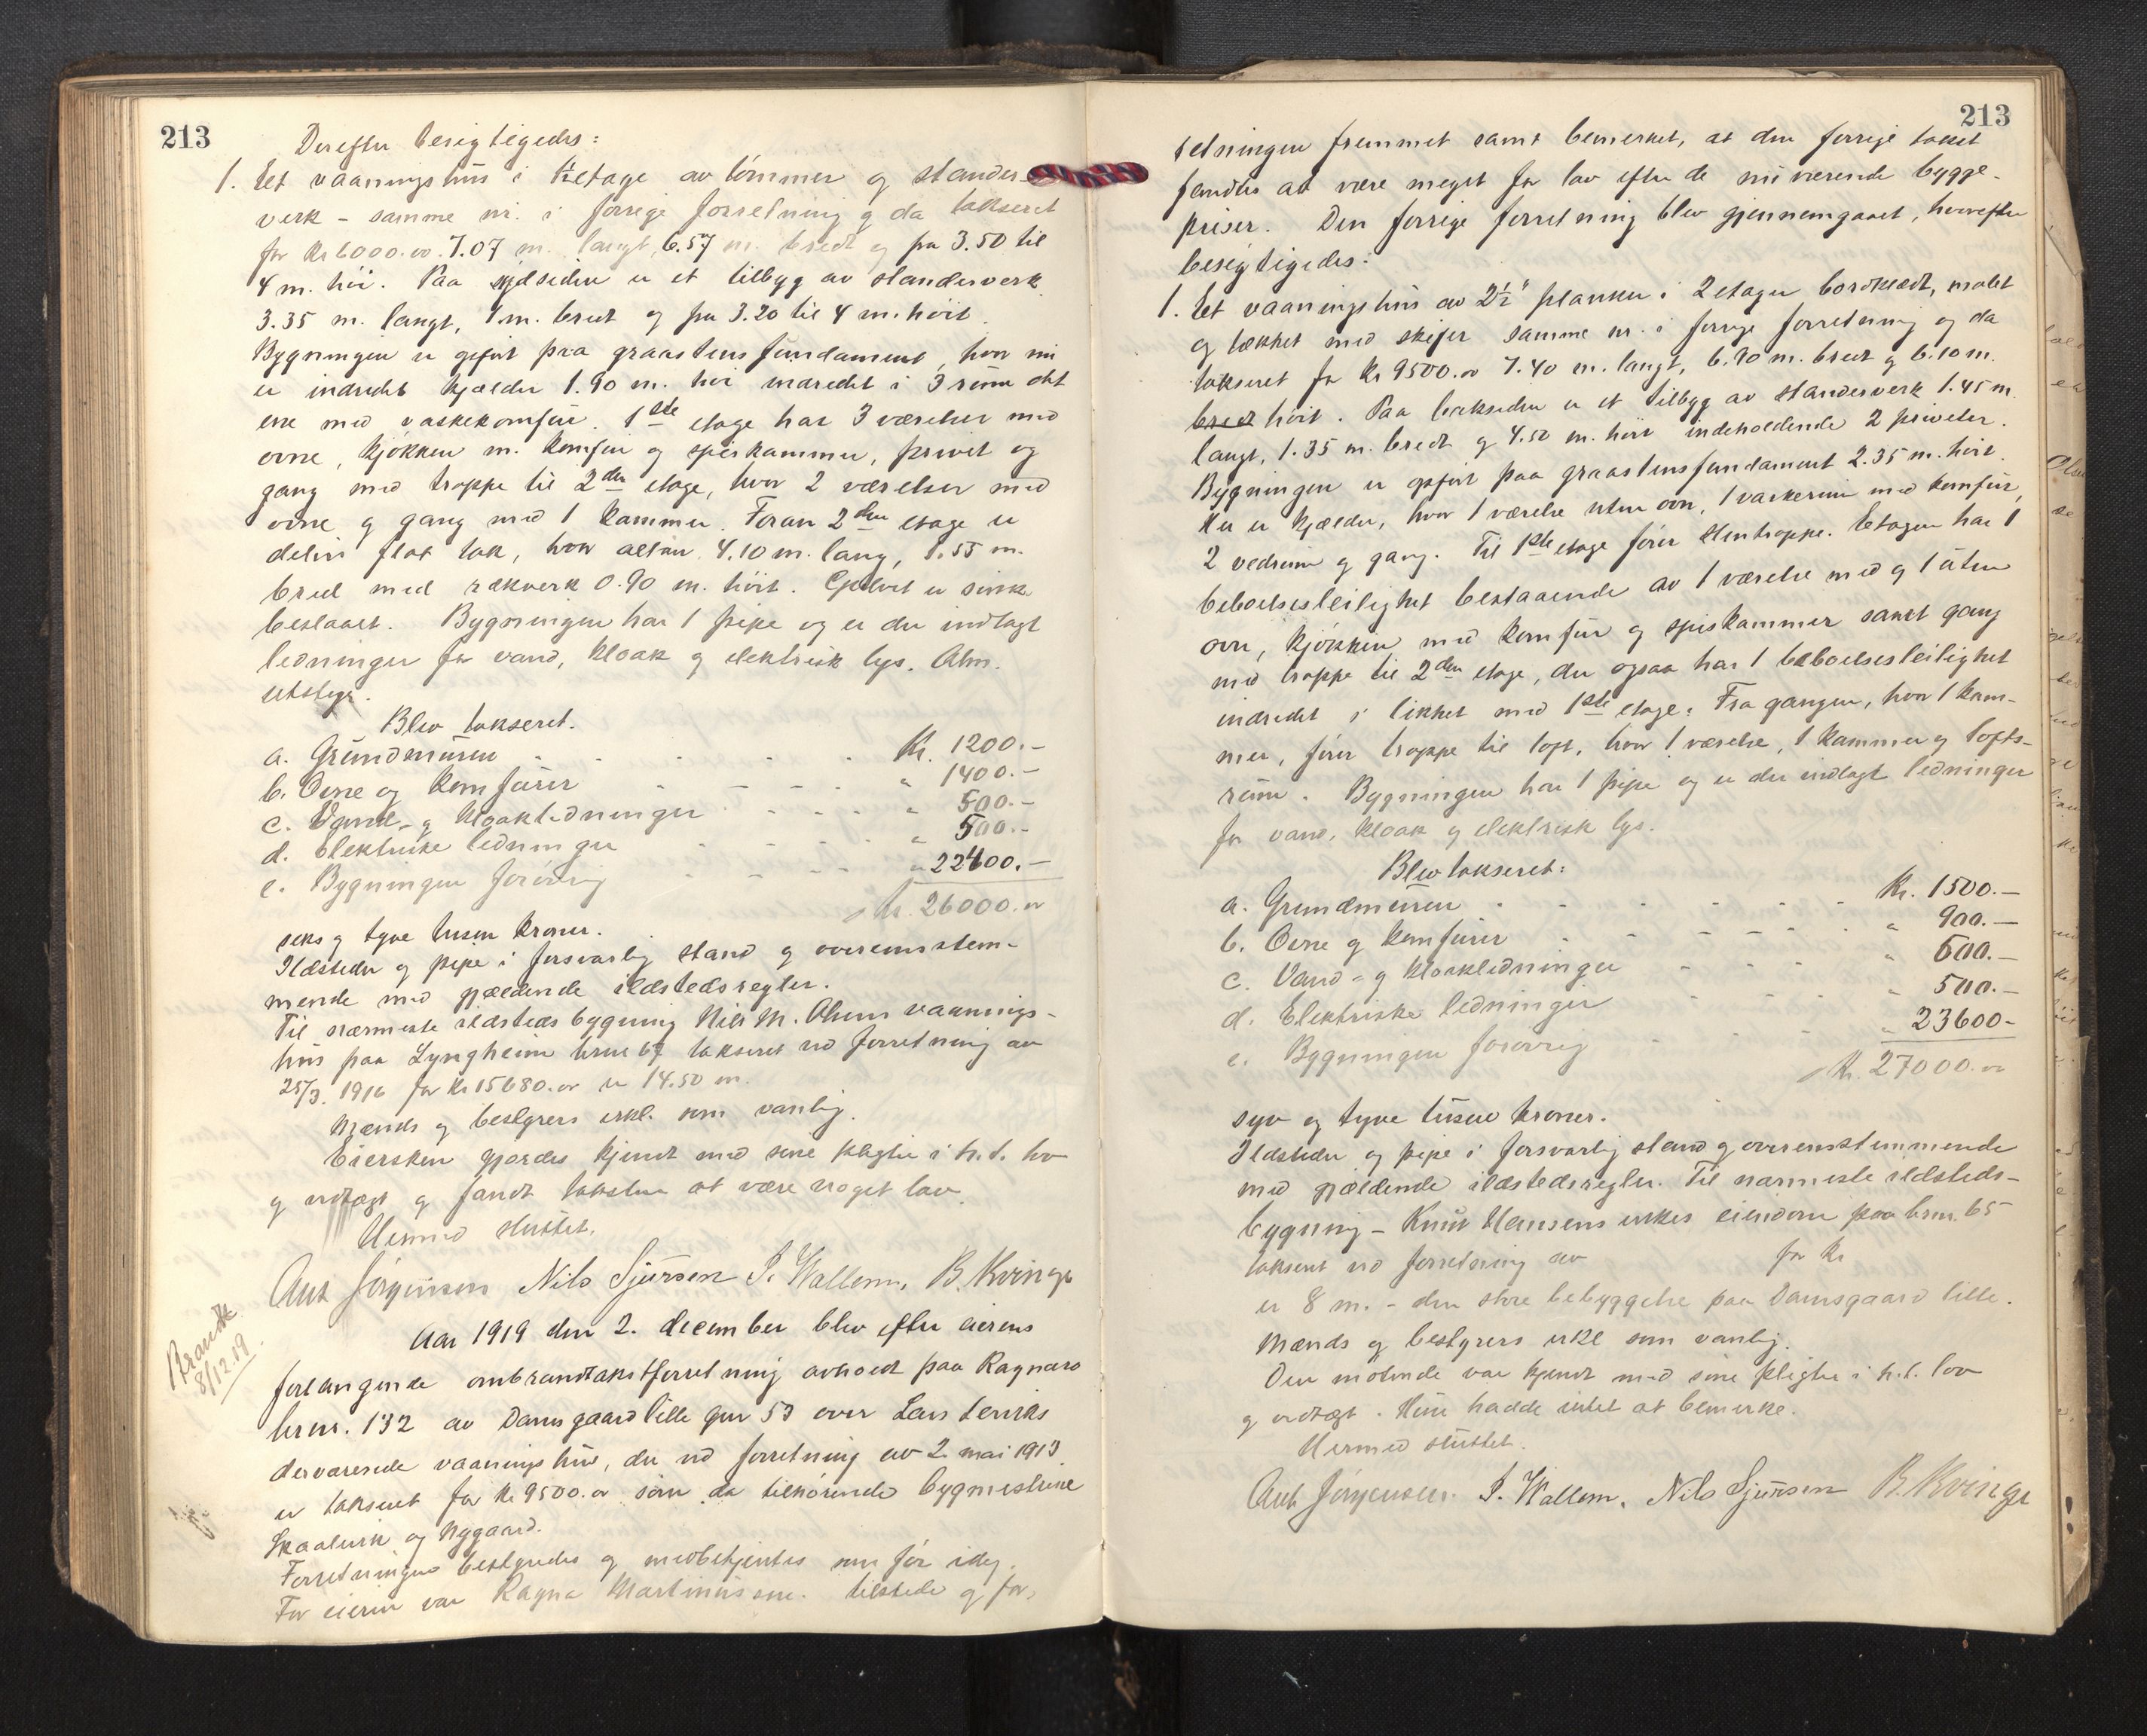 213
Derefter besigtigedes:
1. Et vaaningshus i 1½ etage av tømmer og stander-
verk – samme nr. i forrige forretning og da takseret
for kr 6000.00. 7.07 m. langt, 6.57 m. bredt og fra 3.50 til
4 m. høi. Paa sydsiden er et tilbyg av standerverk
3.35 m. langt, 1 m. bredt og fra 3.20 til 4 m. høit.
Bygningen er opført paa graastensfundament, hvor nu
er indredet kjælder 1.90 m. høi indredet i 3 rum det
ene med vaskekomfur. 1ste etage har 3 værelser med
ovne, kjøkken m. komfur og spiskammer, privet og
gang med trappe til 2den etage, hvor 2 værelser med
ovne og gang med 1 kammer. Foran 2den etage er
delvis flat tak, hvor altan 4.10 m. lang, 1.55 m.
bred med rækverk 0.90 m. høit. Gulvet er sink
beslaaet. Bygningen har 1 pipe og er der indlagt
ledninger for vand, kloak og elektrisk lys. Alm.
utstyr.
Blev takseret.
a. Grundmuren Kr. 1200.–
b. Ovne og komfurer " 1400.–
c. Vand- og kloakledninger " 500.–
d. Elektriske ledninger " 500.–
e. Bygningen forøvrig " 22400.–
Kr. 26000.00
seks og tyve tusen kroner.
Ildsteder og pipe i forsvarlig stand og overensstem-
mende med gjældende ildstedsregler.
Til nærmeste ildstedsbygning Nils M. Olsens vaanings-
hus paa Lyngheim brnr 67 takseret ved forretning av
25/3. 1916 for kr 15680.00 er 14.50 m.
Mænds og bestyrers erkl. som vanlig.
Eiersken gjordes kjendt med sine pligter i h.t. lov
og vedtægt og fandt taksten at være noget lav.
Hermed sluttet.
Ant Jørgensen Nils Sjursen J. Wallem. B. Kvinge
Brandtk.
8/12.19.
Aar 1919 den 2. december blev efter eierens
forlangende ombrandtakstforretning avholdt paa Ragnaro
brnr. 132 av Damsgaard lille gnr 53 over Lars Lerviks
derværende vaaningshus, der ved forretning av 2 mai 1913
er takseret for kr 9500.00 som da tilhørende bygmestrene
Skaalevik og Nygaard.
Forretningen bestyredes og medbetjentes som før idag.
For eieren var Ragna Martinussen tilstede og for-
213
retningen fremmet samt bemerket, at den forrige takst
fandtes at være meget for lav efter de nuværende bygge-
priser. Den forrige forretning blev gjennemgaaet, hvorefter
besigtigedes:
1. Et vaaningshus av 2½" planker i 2 etager bordklædt, malet
og tækket med skifer samme nr. i forrige forretning og da
takseret for kr 9500.00 7.40 m. langt, 6.90 m. bredt og 6.10 m.
bredt høit. Paa baksiden er et tilbyg av standerverk 1.45 m.
langt, 1.35 m. bredt og 4.50 m. høit indeholdende 2 priveter.
Bygningen er opført paa graastensfundament 2.35 m. høit.
Her er kjælder, hvor 1 værelse uten ovn, 1 vaskerum med komfur,
2 vedrum og gang. Til 1ste etage fører stentrappe. Etagen har 1
beboelsesleilighet bestaaende av 1 værelse med og 1 uten
ovn, kjøkken med komfur og spiskammer samt gang
med trappe til 2den etage, der ogsaa har 1 beboelsesleilighet
indredet i likhet med 1ste etage. Fra gangen, hvor 1 kam-
mer, fører trappe til loft, hvor 1 værelse, 1 kammer og lofts-
rum. Bygningen har 1 pipe og er der indlagt ledninger
for vand, kloak og elektrisk lys.
Blev takseret:
a. Grundmuren Kr. 1500.–
b. Ovne og komfurer " 900.–
c. Vand- og kloakledninger " 500.–
d. Elektriske ledninger " 500.–
e. Bygningen forøvrig " 23600–
Kr. 27000.00
syv og tyve tusen kroner.
Ildsteder og pipe i forsvarlig stand og overensstemmende
med gjældende ildstedsregler. Til nærmeste ildsteds-
bygning – Knut Hansens enkes eiendom paa brnr. 65
takseret ved forretning av for kr
er 8 m. – den store bebyggelse paa Damsgaard lille.
Mænds og bestyrers erkl som vanlig.
Den møtende var kjendt med sine pligter i h.t. lov
og vedtægt. Hun hadde intet at bemerke.
Hermed sluttet.
Ant Jørgensen. J. Wallem. Nils Sjursen B. Kvinge